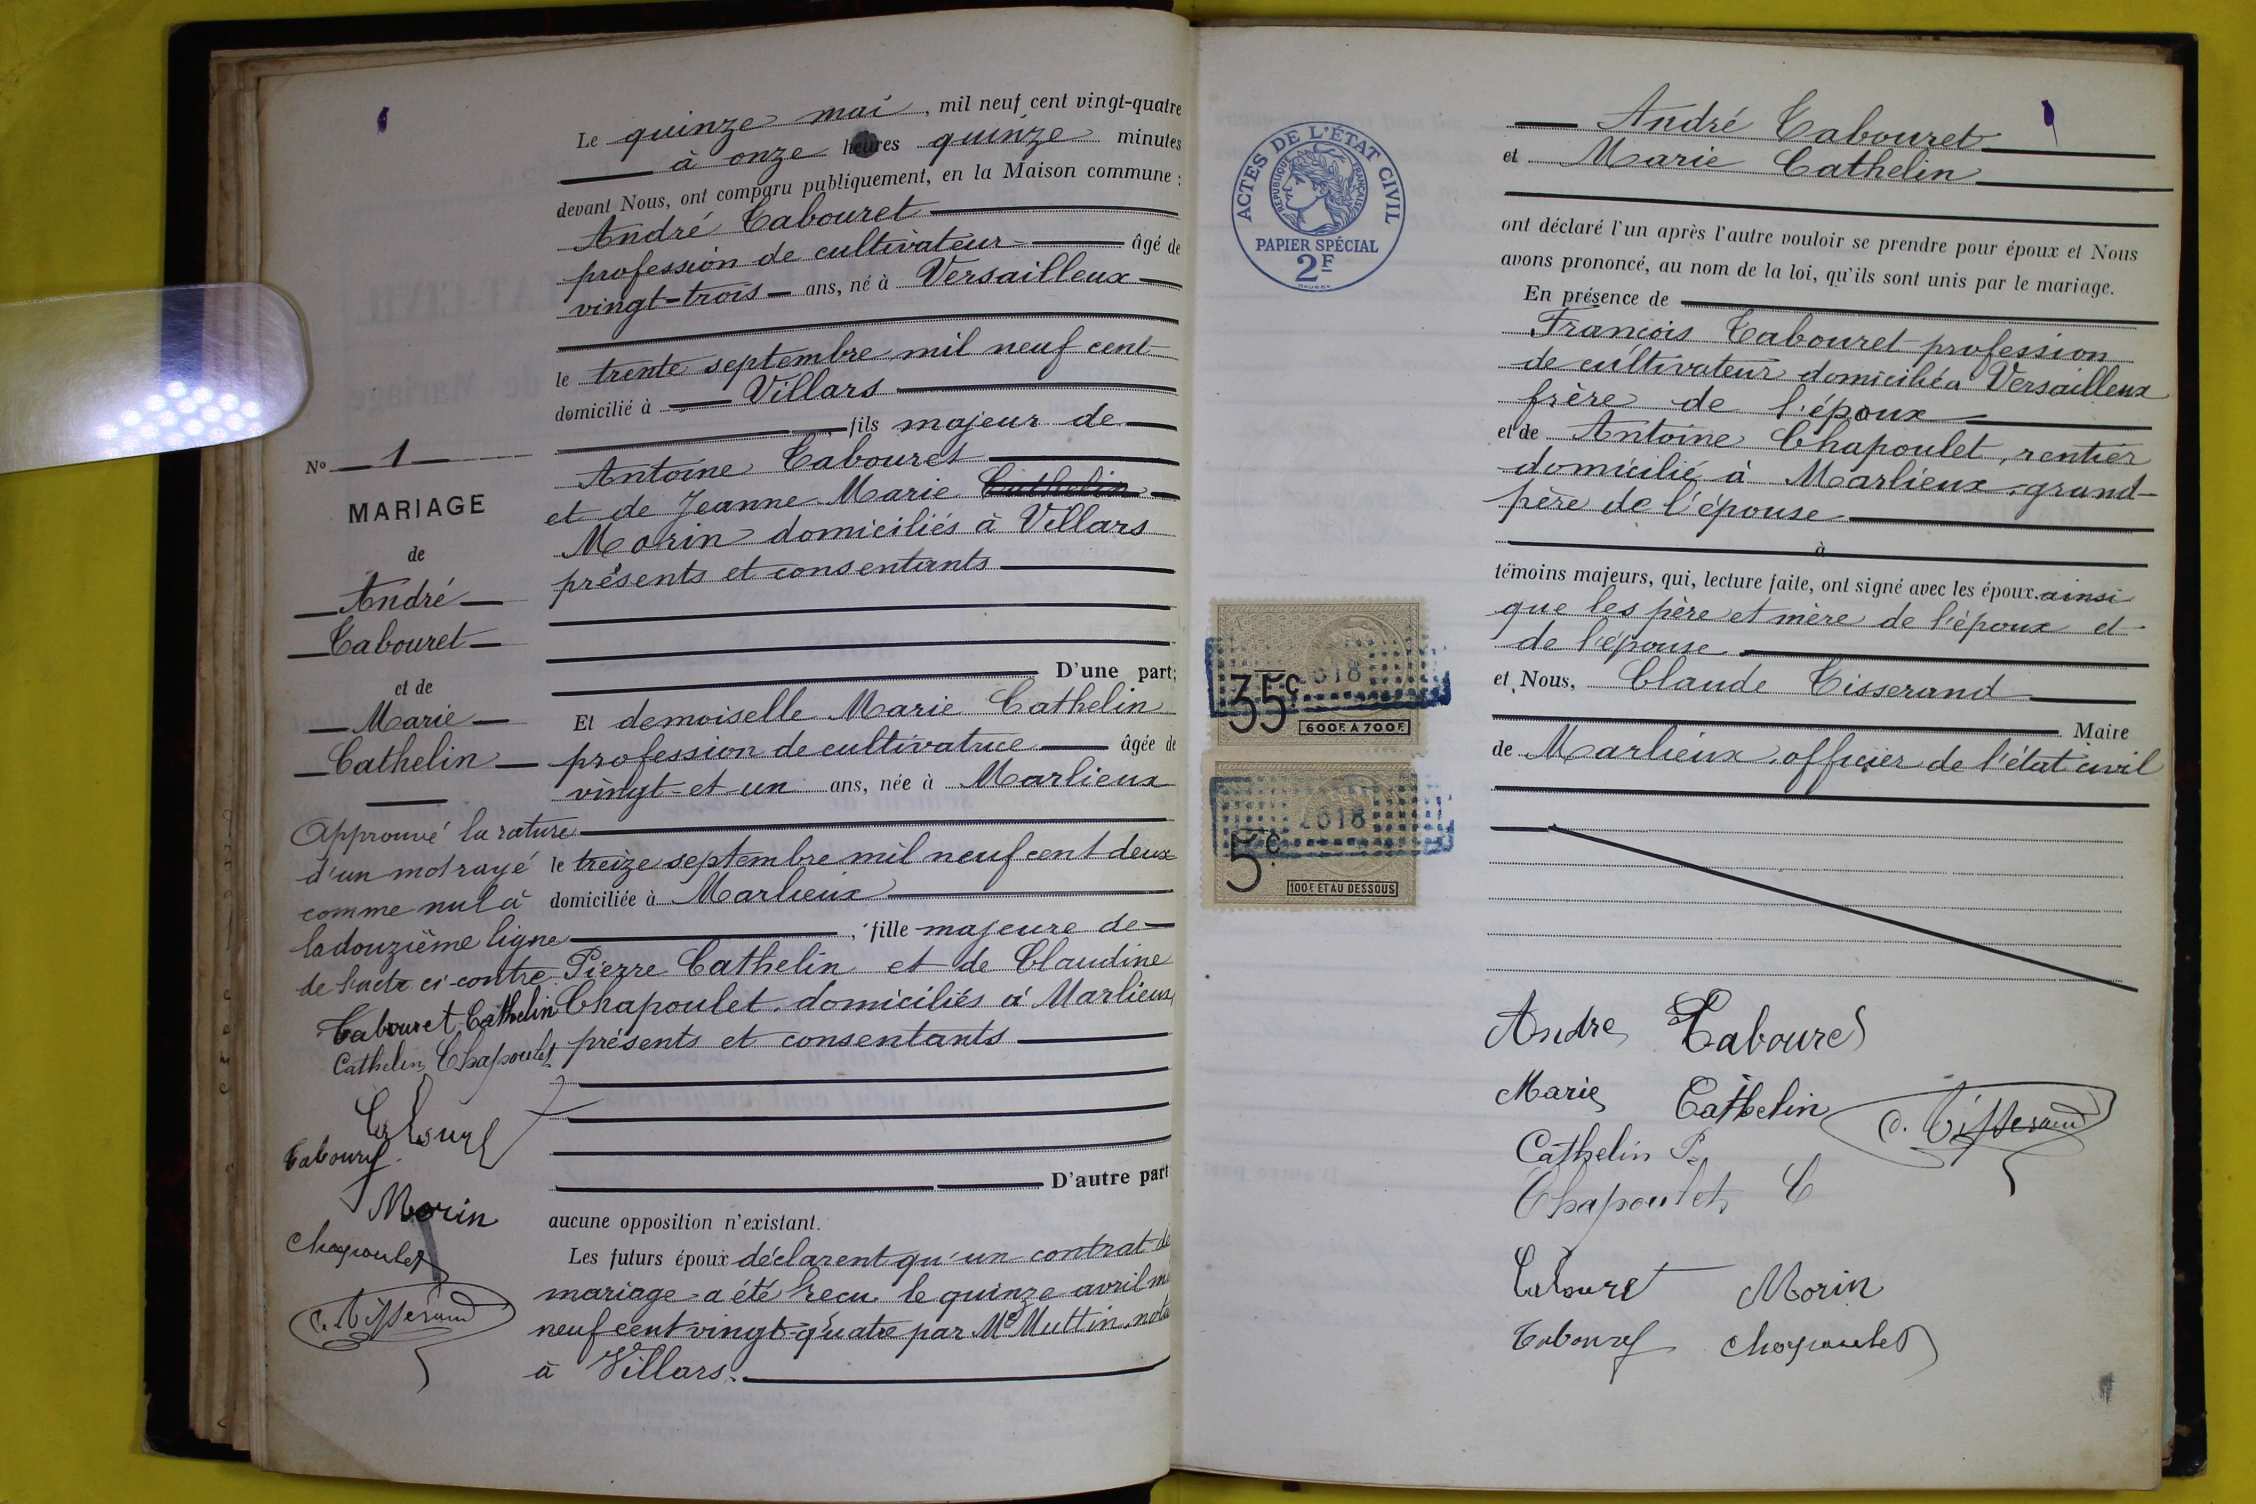 Nº 1
MARIAGE
de
André
Tabouret
et de
Marie
Cathelin
Approuvé la rature
d'un mot rayé
comme nul à
la douzième ligne
de l'acte ci-contre
Tabouret Cathelin
Cathelin Chapoulet
Tabouret
Tabouret
Morin
Chapoulet
C. Tisserand
Le quinze mai, mil neuf cent vingt-quatre
à onze heures quinze minutes
devant Nous, ont comparu publiquement, en la Maison commune :
André Tabouret
profession de cultivateur âgé de
vingt-trois ans, né à Versailleux
le trente septembre mil neuf cent
domicilié à Villars
fils majeur de
Antoine Tabouret
et de Jeanne-Marie Cathelin
Morin domiciliés à Villars
présents et consentants
D'une part;
Et demoiselle Marie Cathelin
profession de cultivatrice âgée de
vingt-et-un ans, née à Marlieux
le treize septembre mil neuf cent deux
domiciliée à Marlieux
, fille majeure de
Pierre Cathelin et de Claudine
Chapoulet, domiciliés à Marlieux,
présents et consentants
D'autre part
aucune opposition n'existant.
Les futurs époux déclarent qu'un contrat de
mariage a été recu le quinze avril mil
neuf cent vingt-quatre par Me Muttin, nota
à Villars.
ACTES DE L'ÉTAT CIVIL
RÉPUBLIQUE FRANÇAISE
PAPIER SPÉCIAL
2F
35c
618
600F. A 700F.
5c
2618
100F. ET AU DESSOUS
André Tabouret
et Marie Cathelin
ont déclaré l'un après l'autre vouloir se prendre pour époux et Nous
avons prononcé, au nom de la loi, qu'ils sont unis par le mariage.
En présence de
Francois Tabouret profession
de cultivateur domicilié à Versailleux
frère de l'époux
et de Antoine Chapoulet, rentier
domicilié à Marlieux, grand-
père de l'épouse
à
témoins majeurs, qui, lecture faite, ont signé avec les époux ainsi
que les père et mère de l'époux et
de l'épouse
et Nous, Claude Tisserand
Maire
de Marlieux, officier de l'état civil
Andre Tabouret
Marie Cathelin
C. Tisserand
Cathelin P.
Chapoulet C
Tabouret Morin
Tabouret Chapoulet